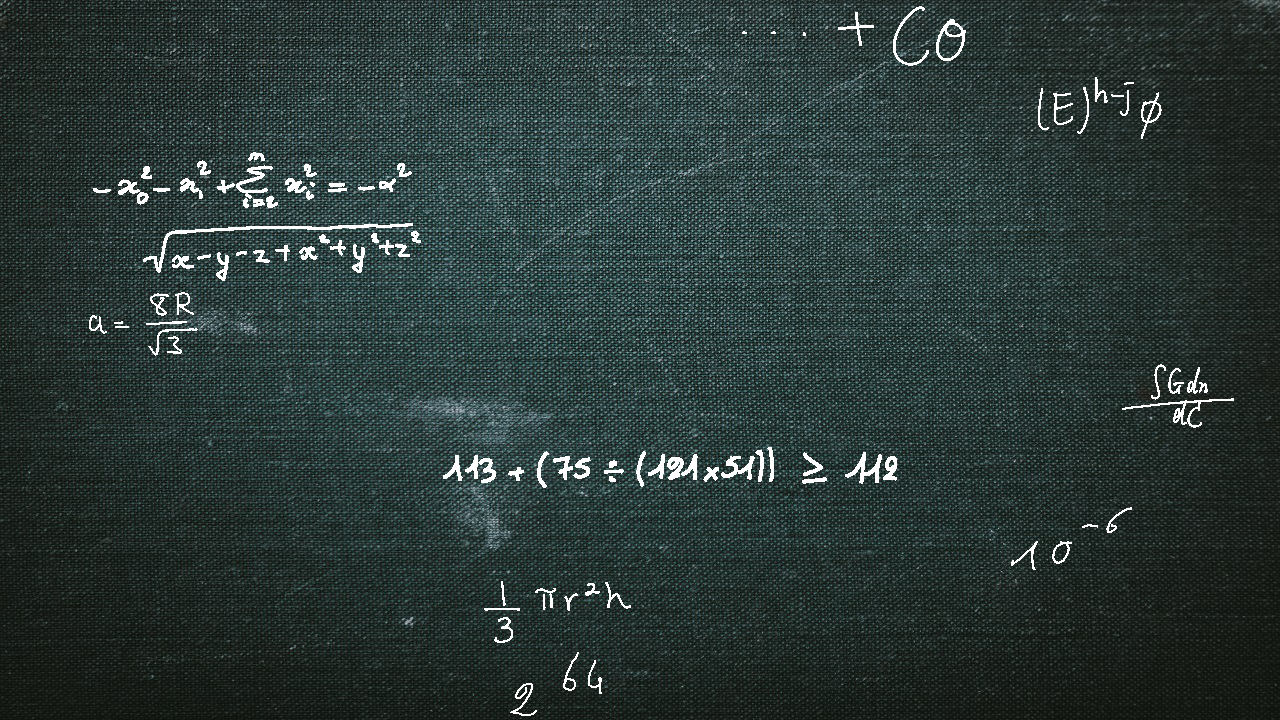 .... + Co
(E)^{h-j} φ
-x_0^2 - x_1^2 + \sum_{i=2}^{n} x_i^2 = -α^2
\sqrt{x-y-z+x^2+y^2+z^2}
a = \frac{8R}{\sqrt{3}}
\frac{∫Gdn}{dC}
113 + (75 ÷ (121×51)) ≥ 112
10^{-6}
\frac{1}{3} πr^2h
2^{64}